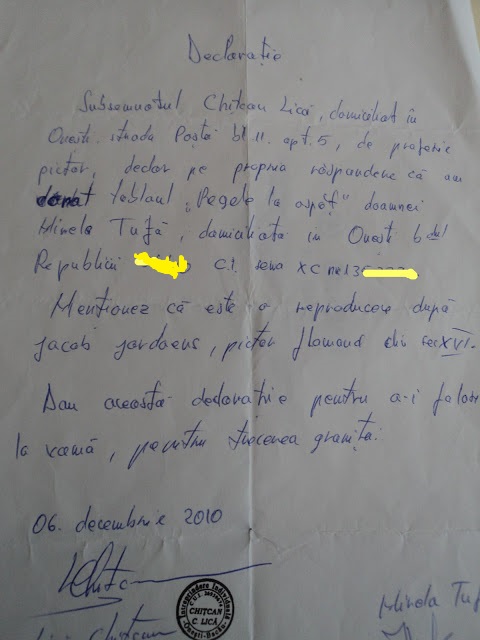 Declarație
Subsemnatul Chițcan Lică, domiciliat în
Onești. strada Poștă bl. 11. apt. 5, de profesie
pictor, declar pe propria răspundere că am
donat tabloul "Regele la ospăț" doamnei
Minela Tufă, domiciliată în Onești bdul
Republicii C.I. seria XC
Menționez că este o reproducere după
Jacob Jordaens, pictor flamand din sec XVI.
Dau această declarație pentru a-i folosi
la vamă, pentru trecerea graniței.
06. decembrie 2010
Chițcan
Întreprindere Individuală
CHIȚCAN
C. LICĂ
Onești-Bacău
Chițcan
Minela Tuf